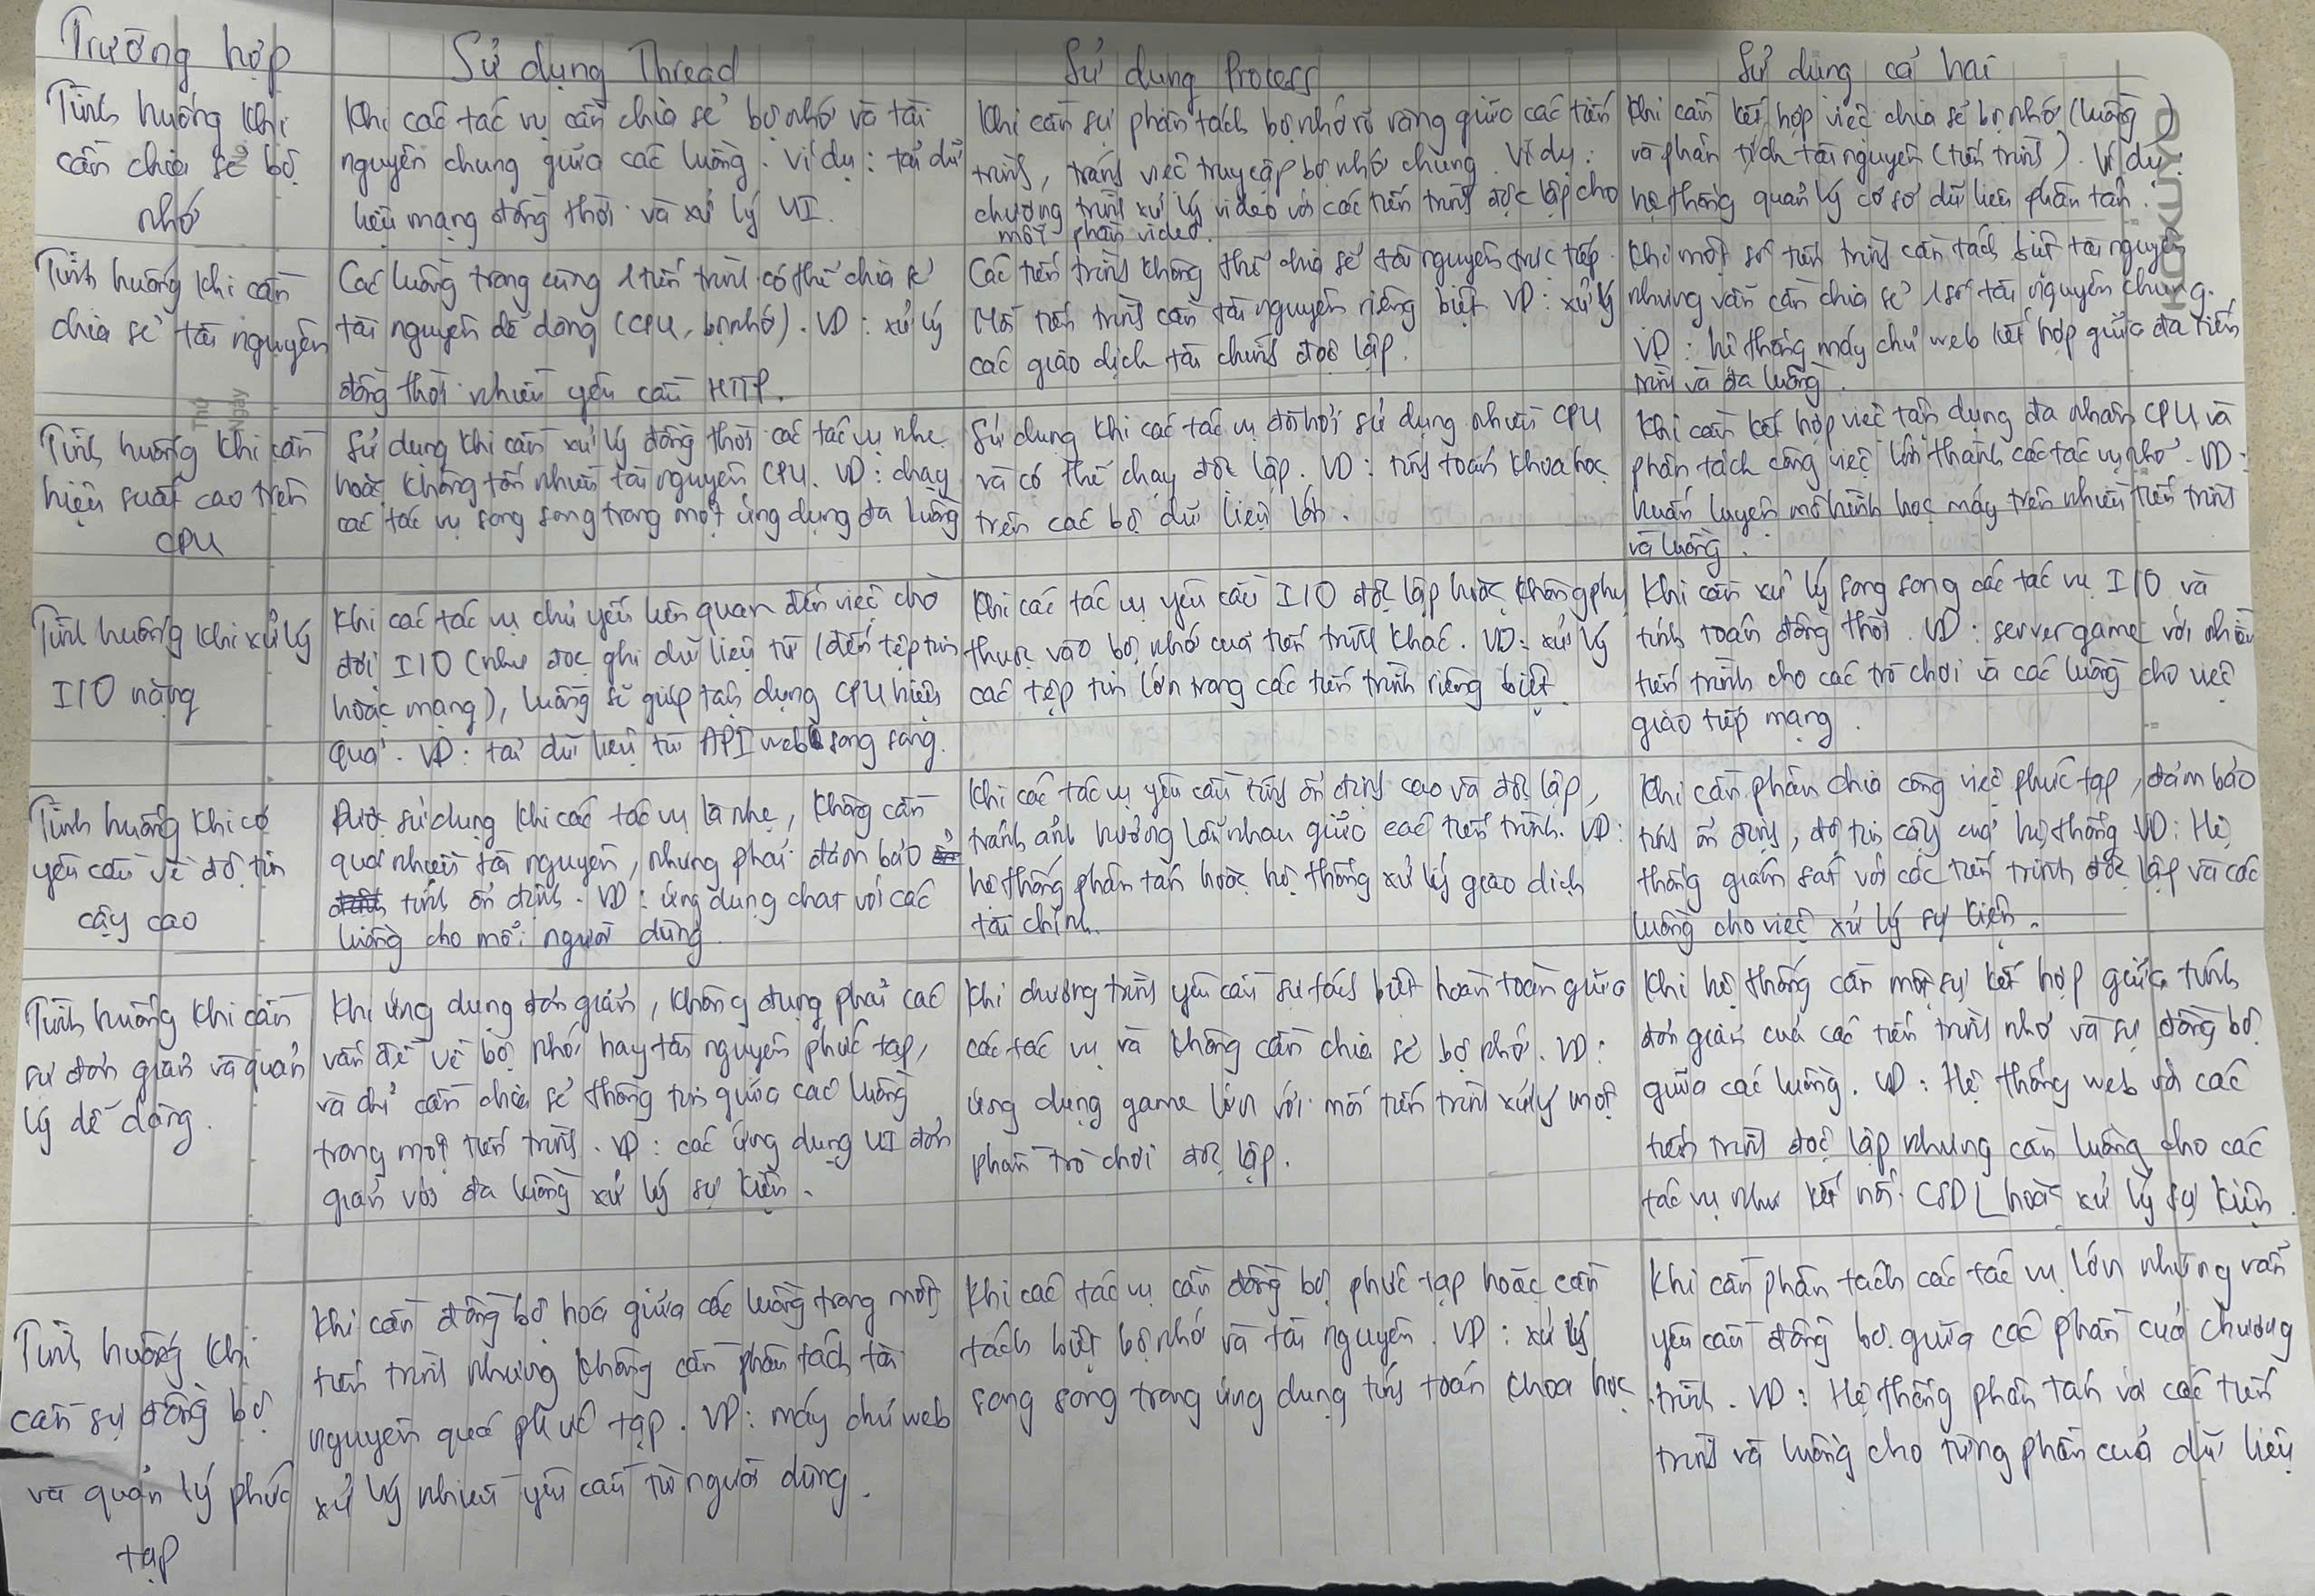 Trường hợp
Sử dụng Thread
Sử dụng Process
Sử dụng cả hai
Tình huống khi
cần chia sẻ bộ
nhớ
Khi các tác vụ cần chia sẻ bộ nhớ và tài
nguyên chung giữa các luồng. Ví dụ: tải dữ
liệu mạng đồng thời và xử lý UI.
Khi cần sự phân tách bộ nhớ rõ ràng giữa các tiến
trình, tránh việc truy cập bộ nhớ chung. Ví dụ:
chương trình xử lý video với các tiến trình độc lập cho
mỗi phần video.
Khi cần kết hợp việc chia sẻ bộ nhớ (luồng)
và phân tích tài nguyên (tiến trình). Ví dụ:
hệ thống quản lý cơ sở dữ liệu phân tán.
Tình huống khi cần
chia sẻ tài nguyên
Các luồng trong cùng 1 tiến trình có thể chia sẻ
tài nguyên dễ dàng (CPU, bộ nhớ). VD: xử lý
đồng thời nhiều yêu cầu HTTP.
Các tiến trình không thể chia sẻ tài nguyên trực tiếp.
Mỗi tiến trình cần tài nguyên riêng biệt VD: xử lý
các giao dịch tài chính độc lập.
Khi một số tiến trình cần tách biệt tài nguyên
nhưng vẫn cần chia sẻ 1 số tài nguyên chung.
VD: hệ thống máy chủ web kết hợp giữa đa tiến
trình và đa luồng.
Thứ
Ngày
Tình huống khi cần
hiệu suất cao trên
CPU
Sử dụng khi cần xử lý đồng thời các tác vụ nhẹ
hoặc không tốn nhiều tài nguyên CPU. VD: chạy
các tác vụ song song trong một ứng dụng đa luồng
Sử dụng khi các tác vụ đòi hỏi sử dụng nhiều CPU
và có thể chạy độc lập. VD: tính toán khoa học
trên các bộ dữ liệu lớn.
Khi cần kết hợp việc tận dụng đa nhân CPU và
phân tách công việc lớn thành các tác vụ nhỏ. VD:
huấn luyện mô hình học máy trên nhiều tiến trình
và luồng.
Tình huống khi xử lý
I/O nặng
Khi các tác vụ chủ yếu liên quan đến việc chờ
đợi I/O (như đọc ghi dữ liệu từ / đến tệp tin
hoặc mạng), luồng sẽ giúp tận dụng CPU hiệu
quả. VD: tải dữ liệu từ API web song song.
Khi các tác vụ yêu cầu I/O độc lập hoặc không phụ
thuộc vào bộ nhớ của tiến trình khác. VD: xử lý
các tệp tin lớn trong các tiến trình riêng biệt.
Khi cần xử lý song song các tác vụ I/O và
tính toán đồng thời. VD: server game với nhiều
tiến trình cho các trò chơi và các luồng cho việc
giao tiếp mạng.
Tình huống khi có
yêu cầu về độ tin
cậy cao
Được sử dụng khi các tác vụ là nhẹ, không cần
quá nhiều tài nguyên, nhưng phải đảm bảo
tính ổn định. VD: ứng dụng chat với các
luồng cho mỗi người dùng.
Khi các tác vụ yêu cầu tính ổn định cao và độc lập,
tránh ảnh hưởng lẫn nhau giữa các tiến trình. VD:
hệ thống phân tán hoặc hệ thống xử lý giao dịch
tài chính.
Khi cần phân chia công việc phức tạp, đảm bảo
tính ổn định, độ tin cậy của hệ thống VD: Hệ
thống giám sát với các tiến trình độc lập và các
luồng cho việc xử lý sự kiện.
Tình huống khi cần
sự đơn giản và quản
lý dễ dàng.
Khi ứng dụng đơn giản, không đụng phải các
vấn đề về bộ nhớ hay tài nguyên phức tạp,
và chỉ cần chia sẻ thông tin giữa các luồng
trong một tiến trình. VD: các ứng dụng UI đơn
giản với đa luồng xử lý sự kiện.
Khi chương trình yêu cầu sự tách biệt hoàn toàn giữa
các tác vụ và không cần chia sẻ bộ nhớ. VD:
ứng dụng game lớn với mỗi tiến trình xử lý một
phần trò chơi độc lập.
Khi hệ thống cần một sự kết hợp giữa tính
đơn giản của các tiến trình nhỏ và sự đồng bộ
giữa các luồng. VD: Hệ thống web với các
tiến trình độc lập nhưng cần luồng cho các
tác vụ như kết nối CSDL hoặc xử lý sự kiện.
Tình huống khi
cần sự đồng bộ
và quản lý phức
tạp
Khi cần đồng bộ hoá giữa các luồng trong một
tiến trình nhưng không cần phân tách tài
nguyên quá phức tạp. VD: máy chủ web
xử lý nhiều yêu cầu từ người dùng.
Khi các tác vụ cần đồng bộ phức tạp hoặc cần
tách biệt bộ nhớ và tài nguyên. VD: xử lý
song song trong ứng dụng tính toán khoa học
Khi cần phân tách các tác vụ lớn nhưng vẫn
yêu cầu đồng bộ giữa các phần của chương
trình. VD: Hệ thống phân tán với các tiến
trình và luồng cho từng phần của dữ liệu